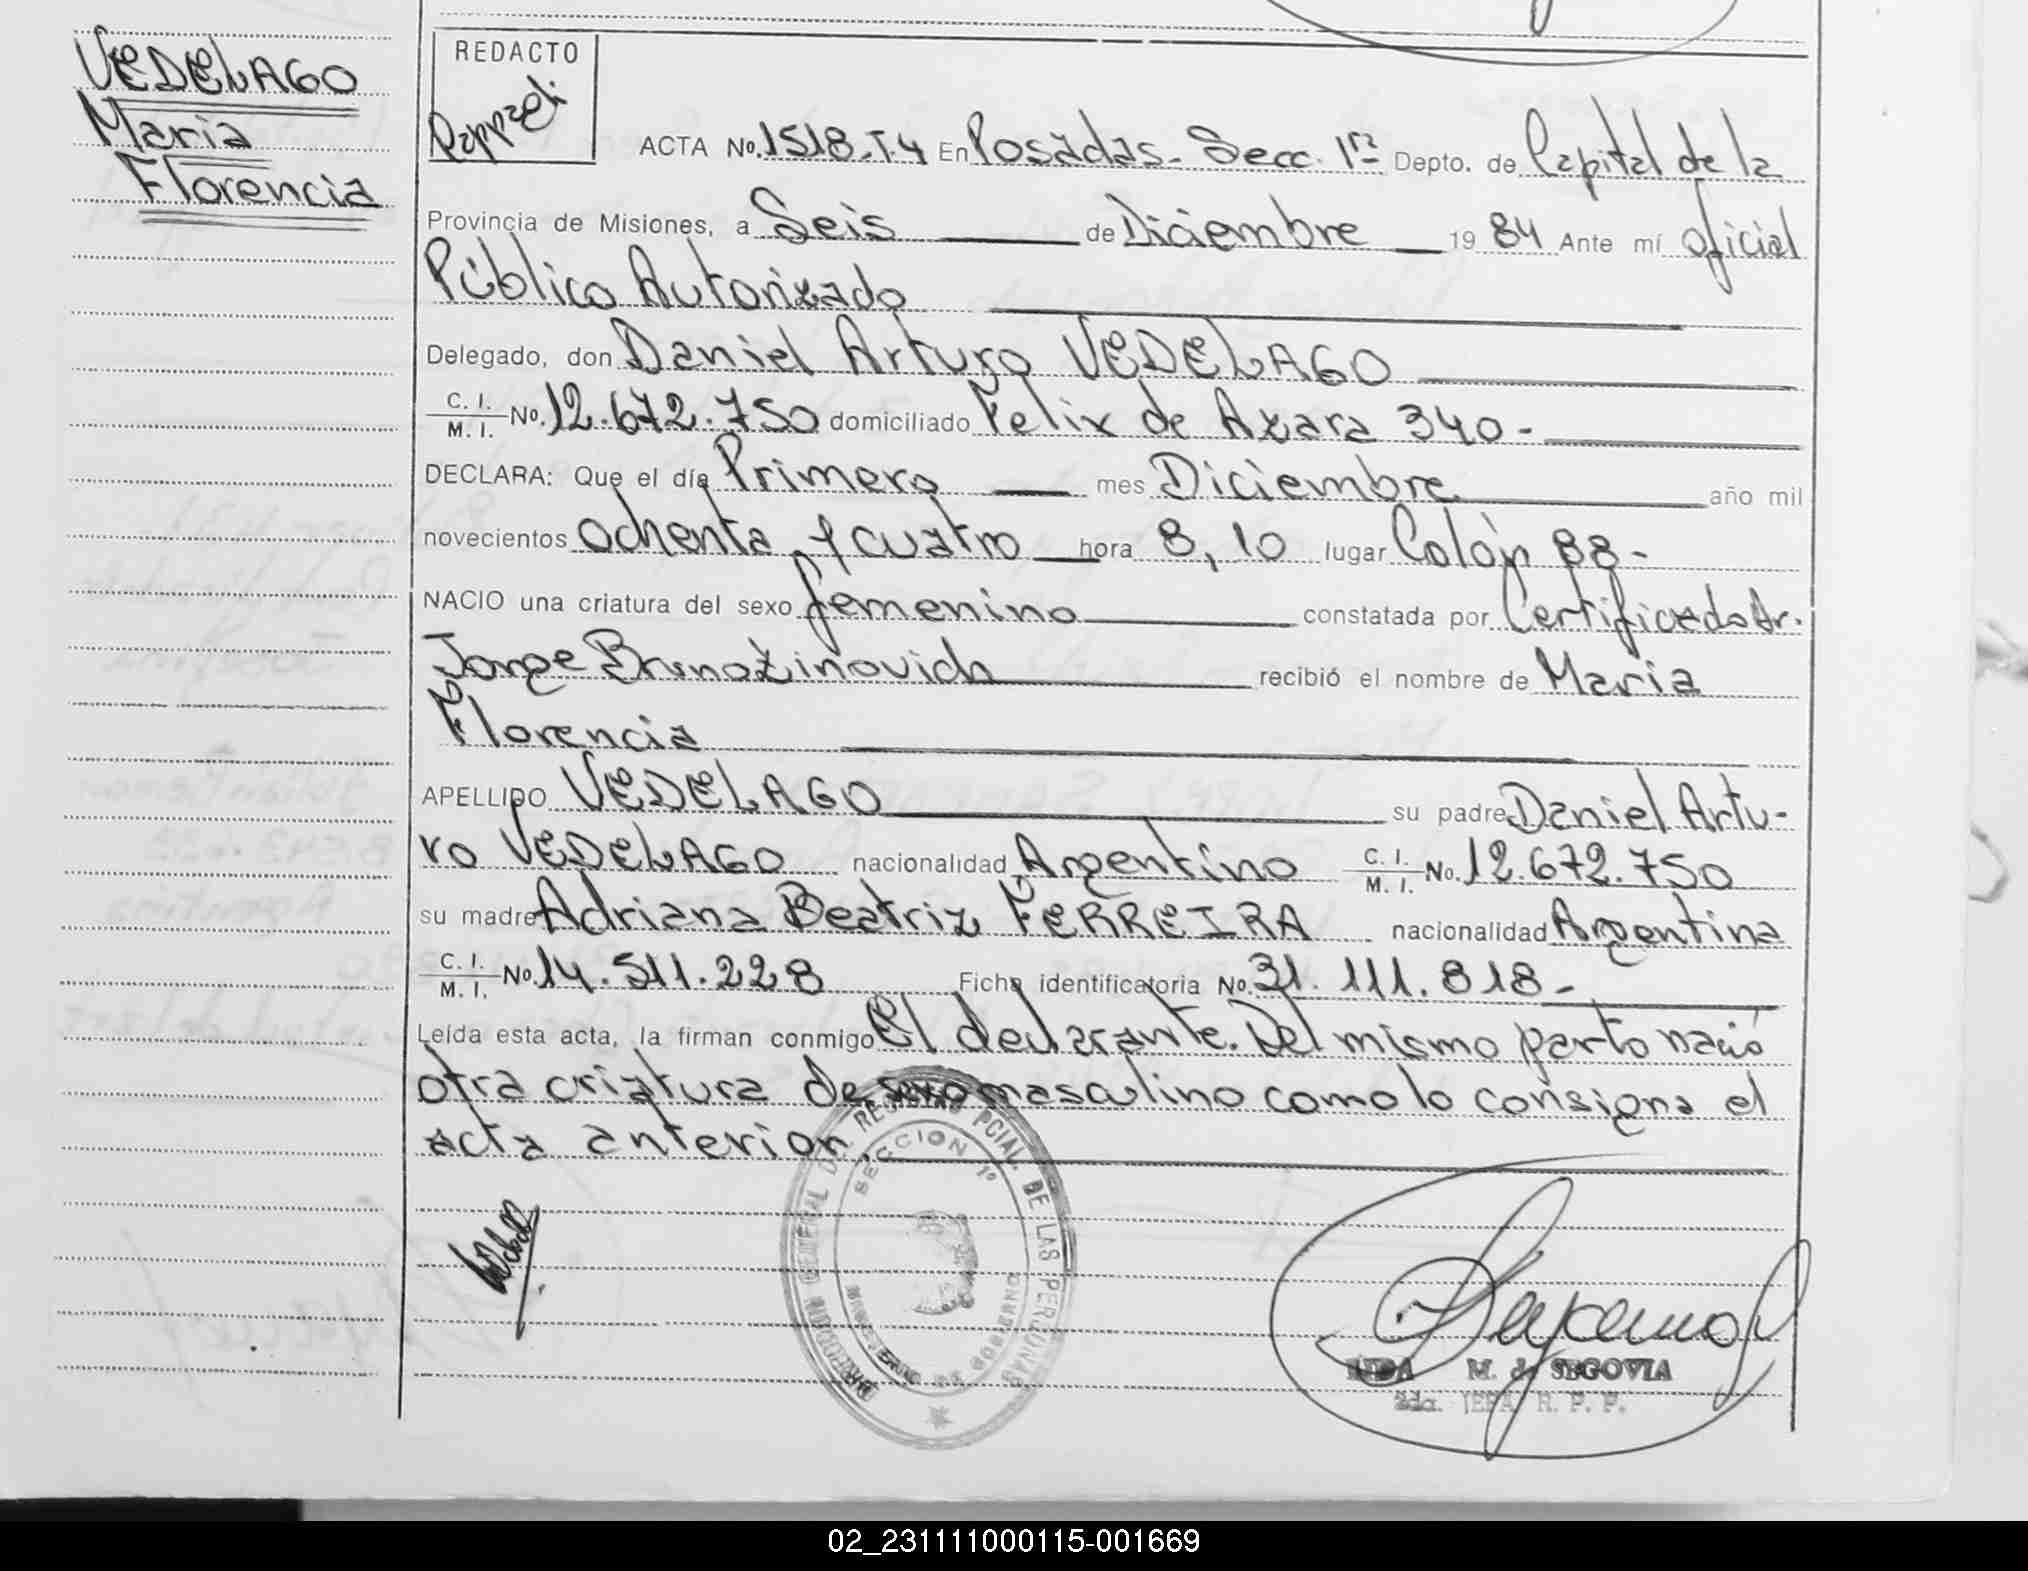 VEDELAGO
Maria
Florencia
REDACTO
ACTA No. 1518-T.4 En Posadas - Secc. 1ra Depto. de Capital de la
Provincia de Misiones, a Seis de Diciembre 1984 Ante mí oficial
Público Autorizado
Delegado, don Daniel Arturo VEDELAGO
C. I.
M. I. No. 12.672.750 domiciliado Felix de Azara 340-
DECLARA: Que el día Primero mes Diciembre año mil
novecientos ochenta y cuatro hora 8,10 lugar Colón 88-
NACIO una criatura del sexo femenino constatada por Certificado Dr.
Jorge Bruno Zinovich recibió el nombre de Maria
Florencia
APELLIDO VEDELAGO su padre Daniel Artu-
ro VEDELAGO nacionalidad Argentino C. I.
M. I. No. 12.672.750
su madre Adriana Beatriz FERREIRA nacionalidad Argentina
C. I.
M. I. No. 14.511.228 Ficha identificatoria No. 31.111.818-
Leída esta acta, la firman conmigo El declarante. Del mismo parto nació
otra criatura de sexo masculino como lo consigna el
acta anterior.
GENERAL DEL REGISTRO PCIAL. DE LAS PERSONAS
SECCION 1º
M. de SEGOVIA
2da. JEFA R. P. P.
02_231111000115-001669